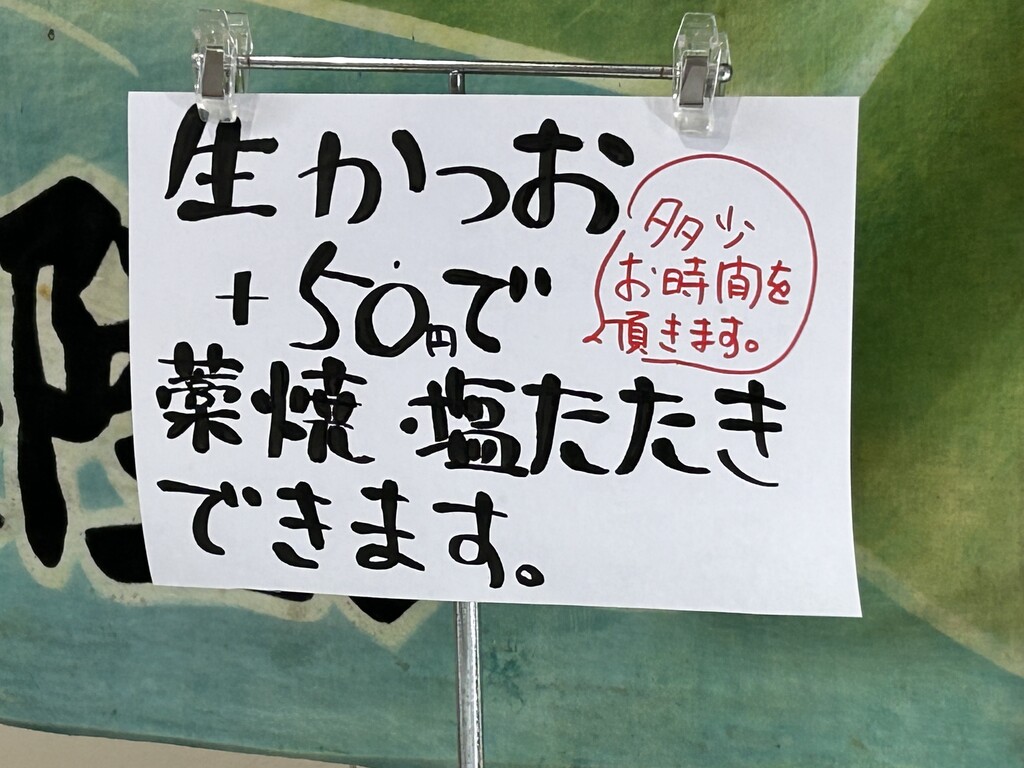 生かつお
+50円で
藁焼・塩たたき
できます。
多少
お時間を
頂きます。